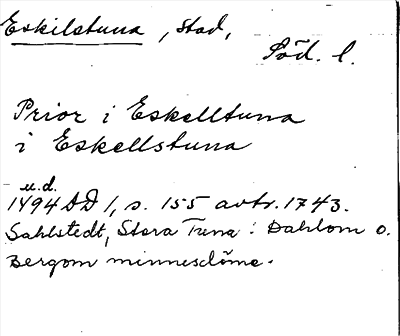 Eskilstuna, stad,
Söd. l.
Prior i Eskelltuna
i Eskellstuna
u.d.
1494 DD 1, s. 155 avtr. 1743.
Sahlstedt, Stora Tuna: Dahlom o.
Bergom minnesdöme.